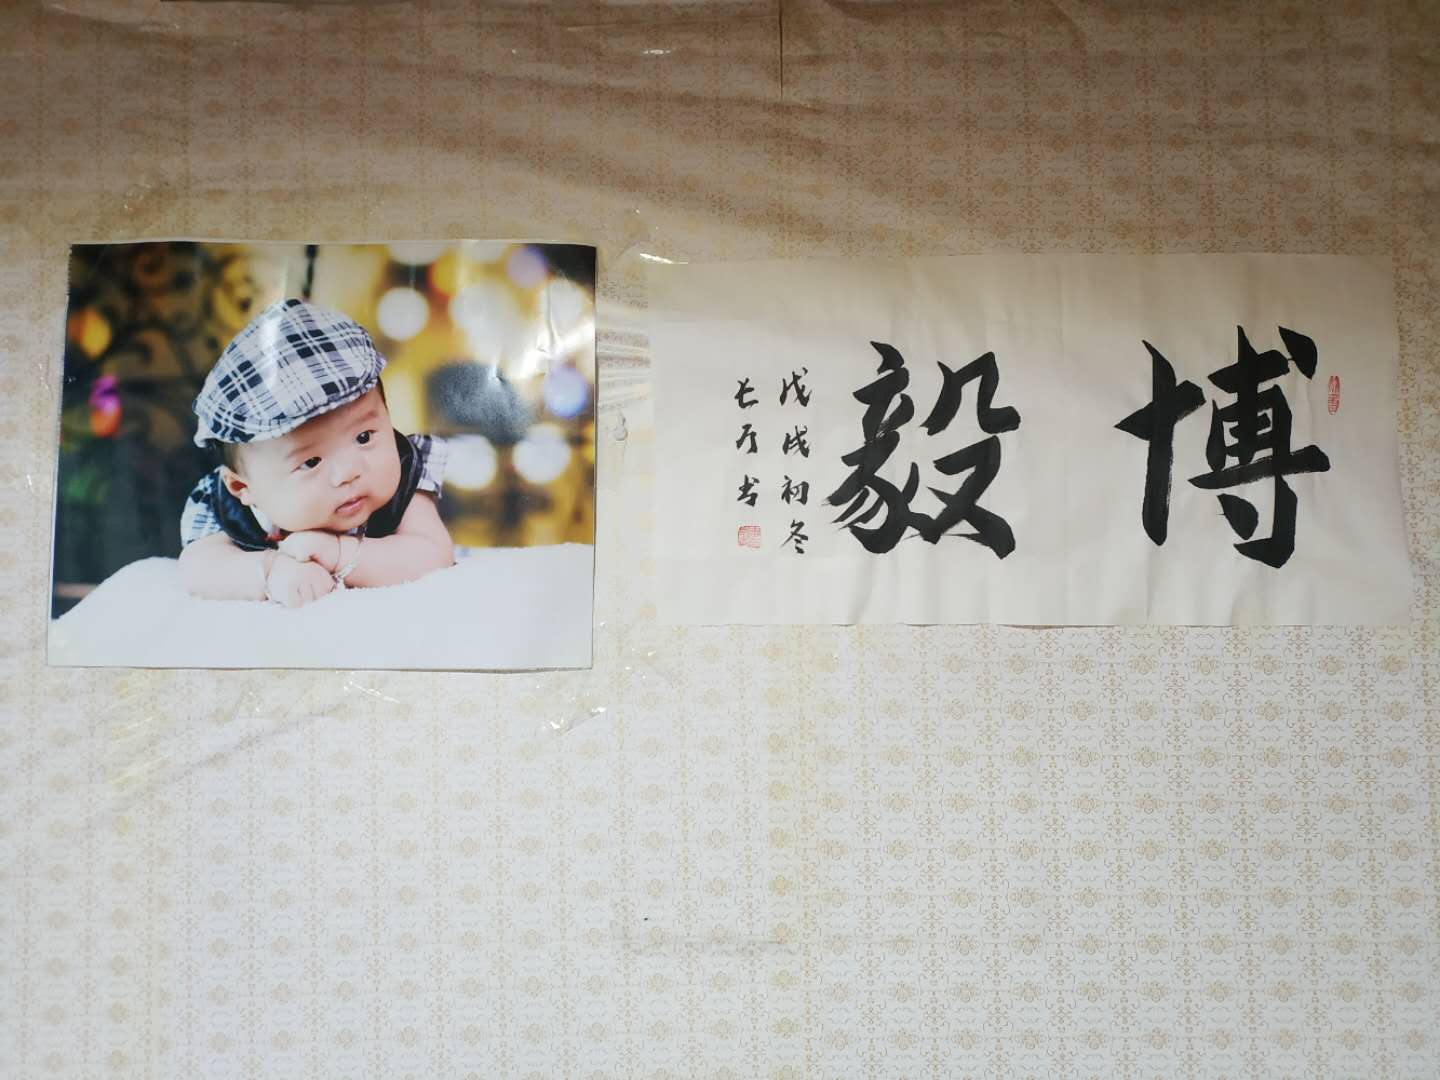 博毅
戊戌初冬
长月书